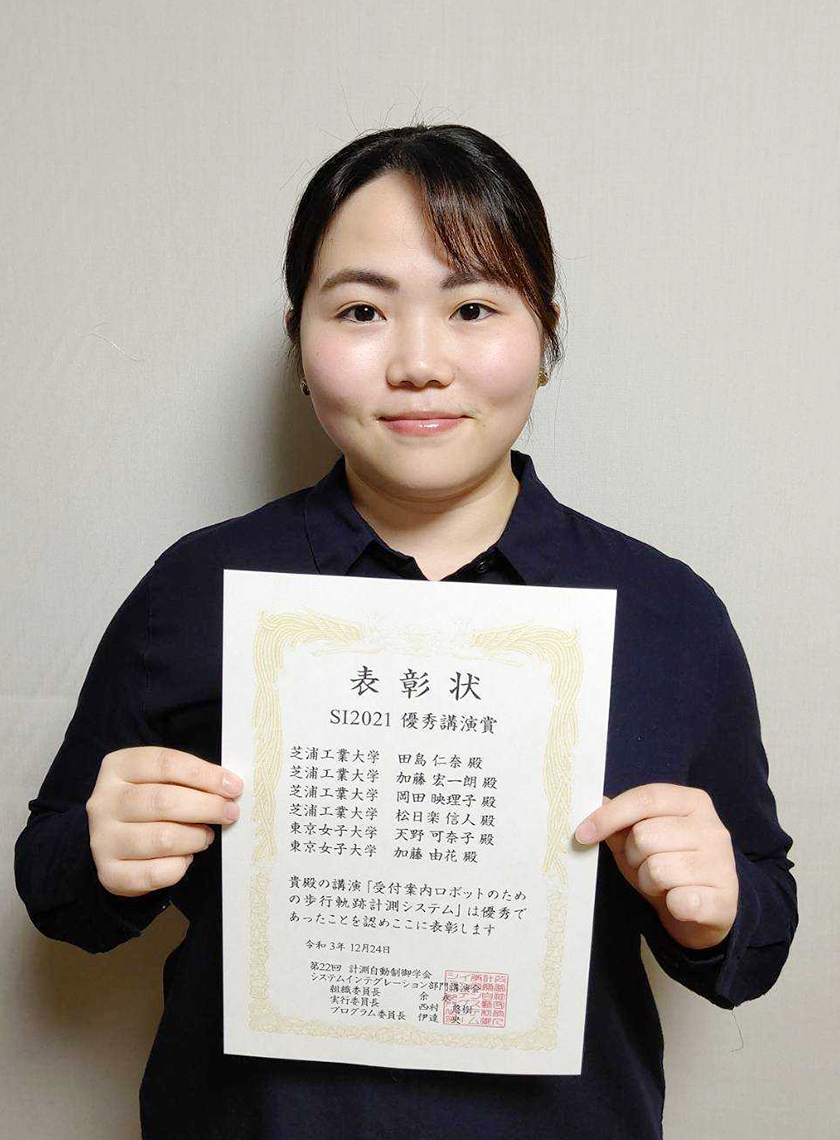 表彰状
SI2021 優秀講演賞
芝浦工業大学 田島 仁奈 殿
芝浦工業大学 加藤 宏一朗 殿
芝浦工業大学 岡田 映理子 殿
芝浦工業大学 松日楽 信人 殿
東京女子大学 天野 可奈子 殿
東京女子大学 加藤 由花 殿
貴殿の講演「受付案内ロボットのため
の歩行軌跡計測システム」は優秀で
あったことを認めここに表彰します
令和3年 12月24日
第22回 計測自動制御学会
システムインテグレーション部門講演会
組織委員長 余
実行委員長 西村
プログラム委員長 伊達 央